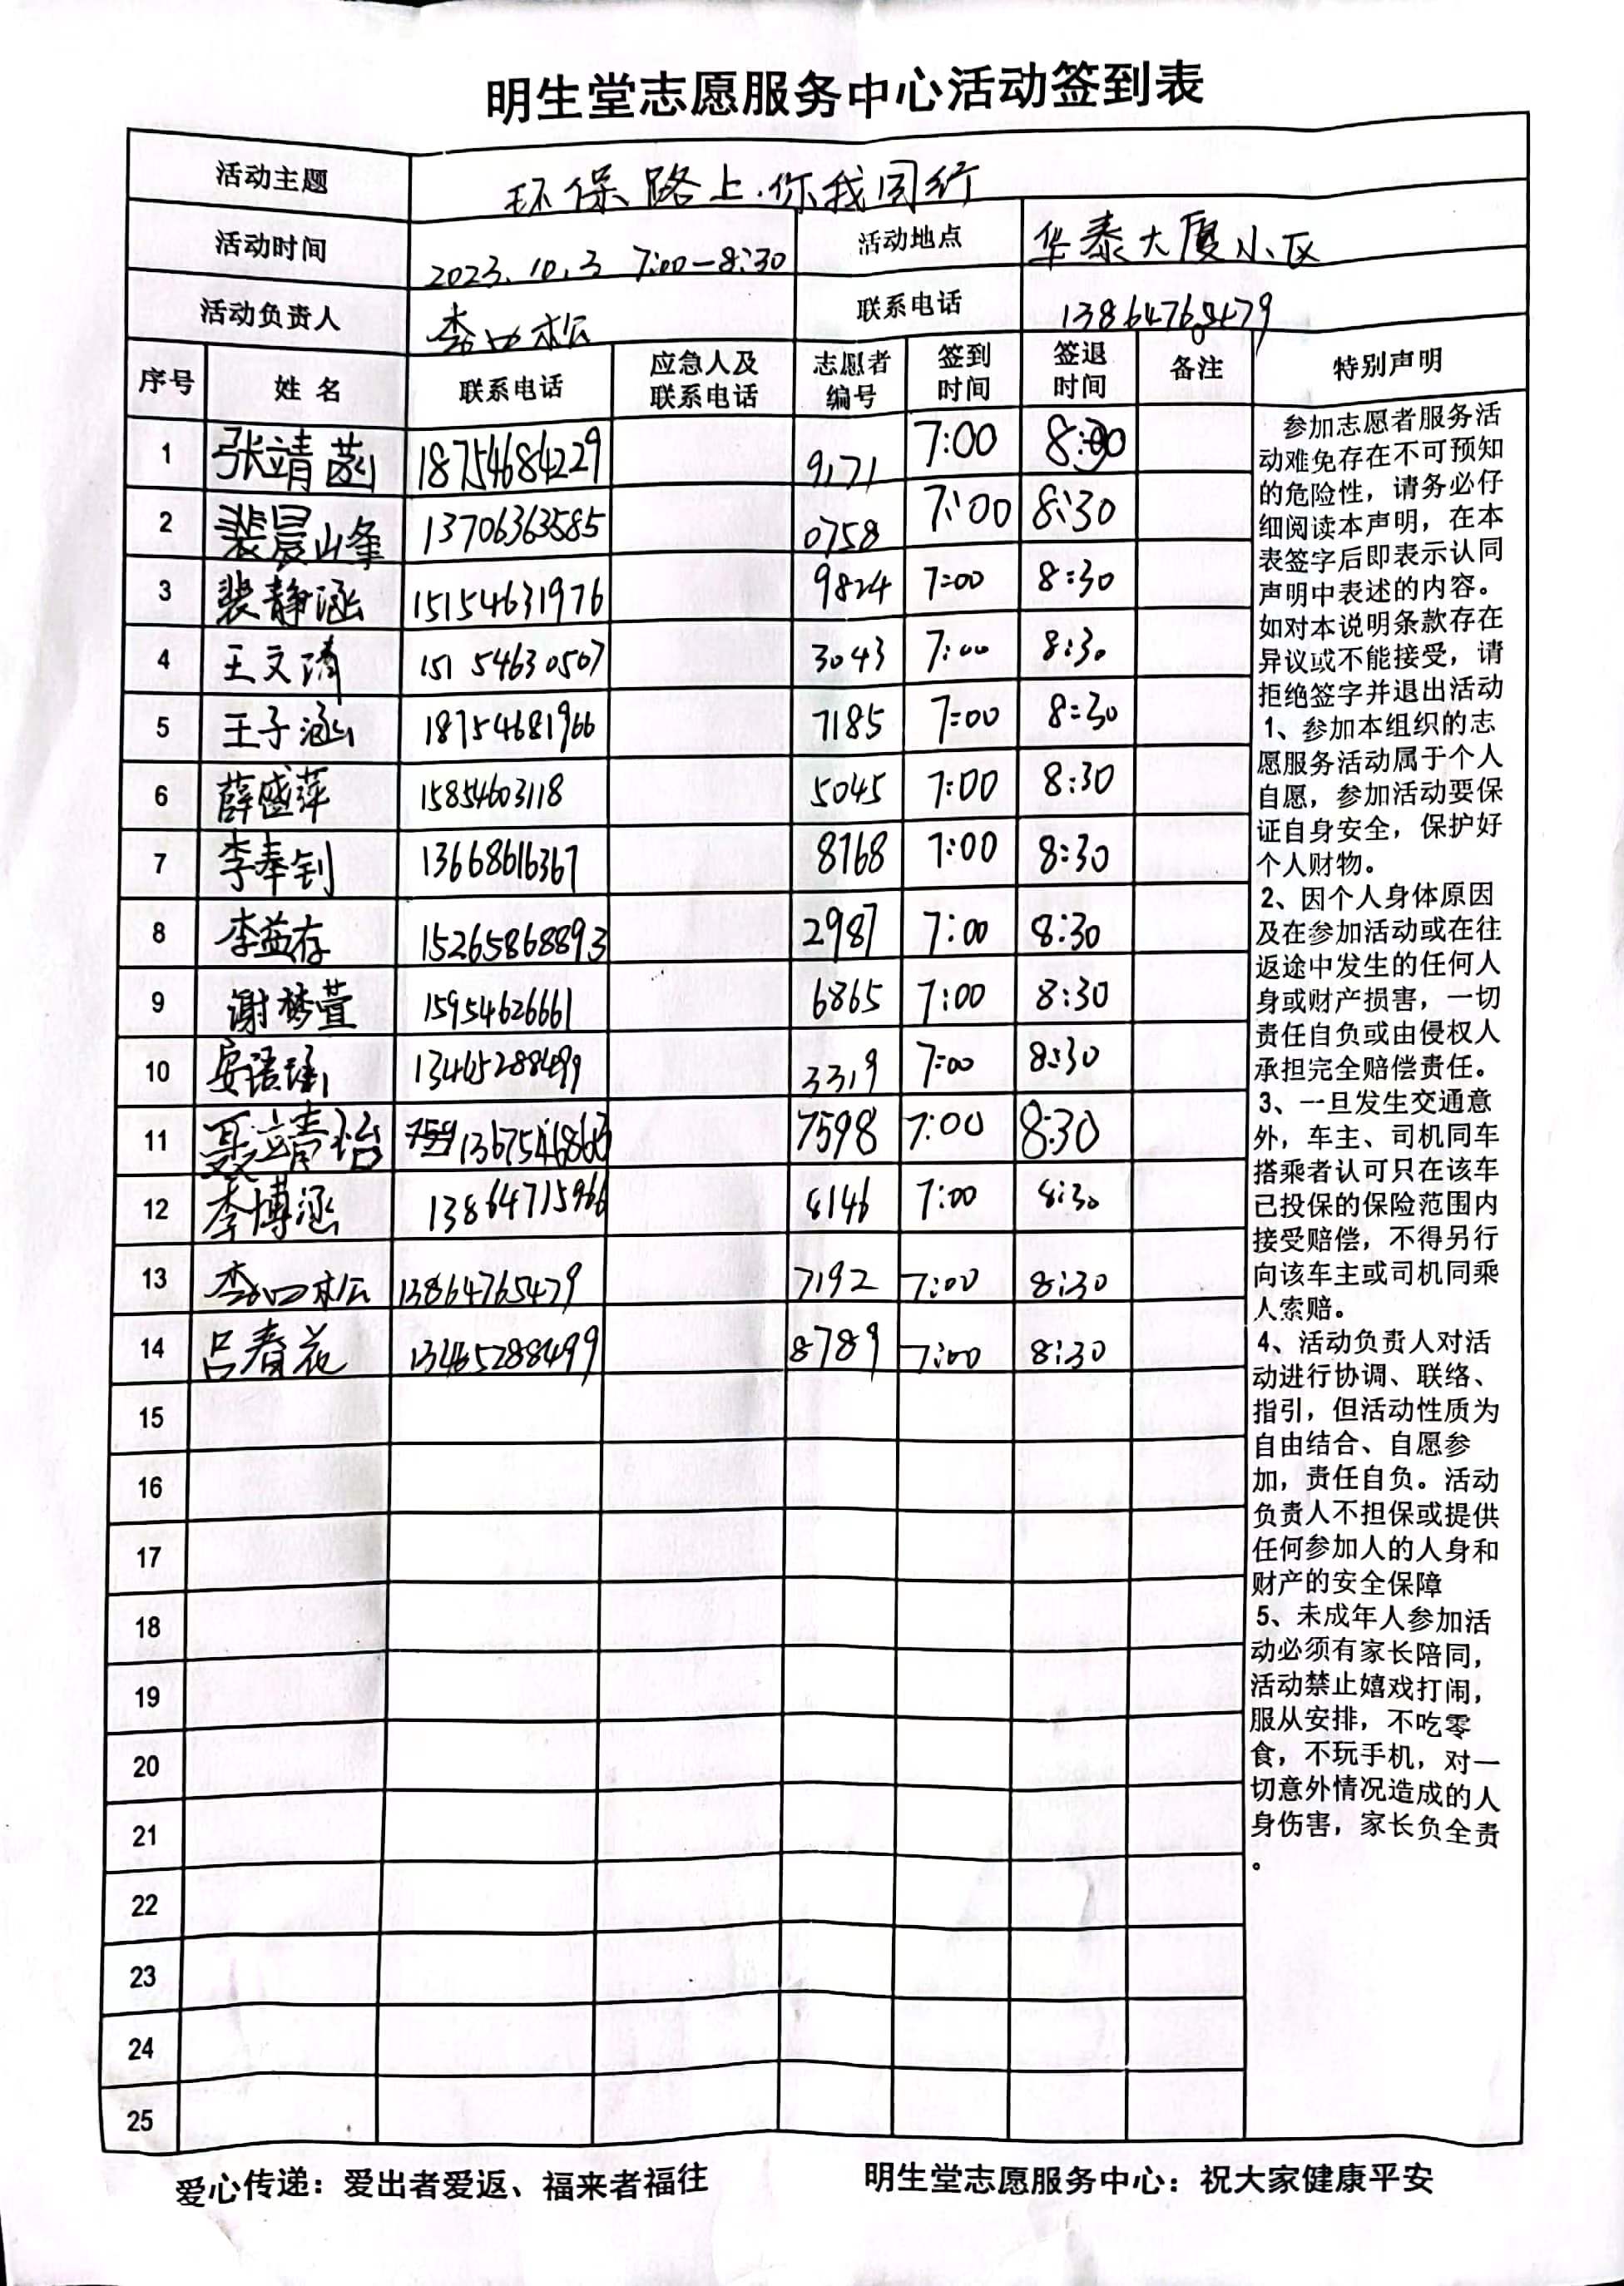 明生堂志愿服务中心活动签到表
活动主题 环保路上.你我同行
活动时间 2023.10.3 7:00-8:30 活动地点 华泰大厦小区
活动负责人 李四松 联系电话 13864765479
序号 姓名 联系电话 应急人及联系电话 志愿者编号 签到时间 签退时间 备注 特别声明
1 张靖 18754684229 9171 7:00 8:30
2 裴晨峰 13706363585 0758 7:00 8:30
3 裴静涵 15154631976 9824 7:00 8:30
4 王文清 15154630507 3043 7:00 8:30
5 王子涵 18754681966 7185 7:00 8:30
6 薛盛萍 15854603118 5045 7:00 8:30
7 李奉钊 13668616367 8768 7:00 8:30
8 李益存 15265868893 2987 7:00 8:30
9 谢梦萱 15954626661 6865 7:00 8:30
10 安语 3319 7:00 8:30
11 聂靖怡 7598 7:00 8:30
12 李博涵 13864715966 8146 7:00 8:30
13 李四松 13864765479 7192 7:00 8:30
14 吕春花 13465288499 8789 7:00 8:30
15
16
17
18
19
20
21
22
23
24
25
参加志愿者服务活
动难免存在不可预知
的危险性，请务必仔
细阅读本声明，在本
表签字后即表示认同
声明中表述的内容。
如对本说明条款存在
异议或不能接受，请
拒绝签字并退出活动
1、参加本组织的志
愿服务活动属于个人
自愿，参加活动要保
证自身安全，保护好
个人财物。
2、因个人身体原因
及在参加活动或在往
返途中发生的任何人
身或财产损害，一切
责任自负或由侵权人
承担完全赔偿责任。
3、一旦发生交通意
外，车主、司机同车
搭乘者认可只在该车
已投保的保险范围内
接受赔偿，不得另行
向该车主或司机同乘
人索赔。
4、活动负责人对活
动进行协调、联络、
指引，但活动性质为
自由结合、自愿参
加，责任自负。活动
负责人不担保或提供
任何参加人的人身和
财产的安全保障
5、未成年人参加活
动必须有家长陪同，
活动禁止嬉戏打闹，
服从安排，不吃零
食，不玩手机，对一
切意外情况造成的人
身伤害，家长负全责
。
爱心传递：爱出者爱返、福来者福往 明生堂志愿服务中心：祝大家健康平安